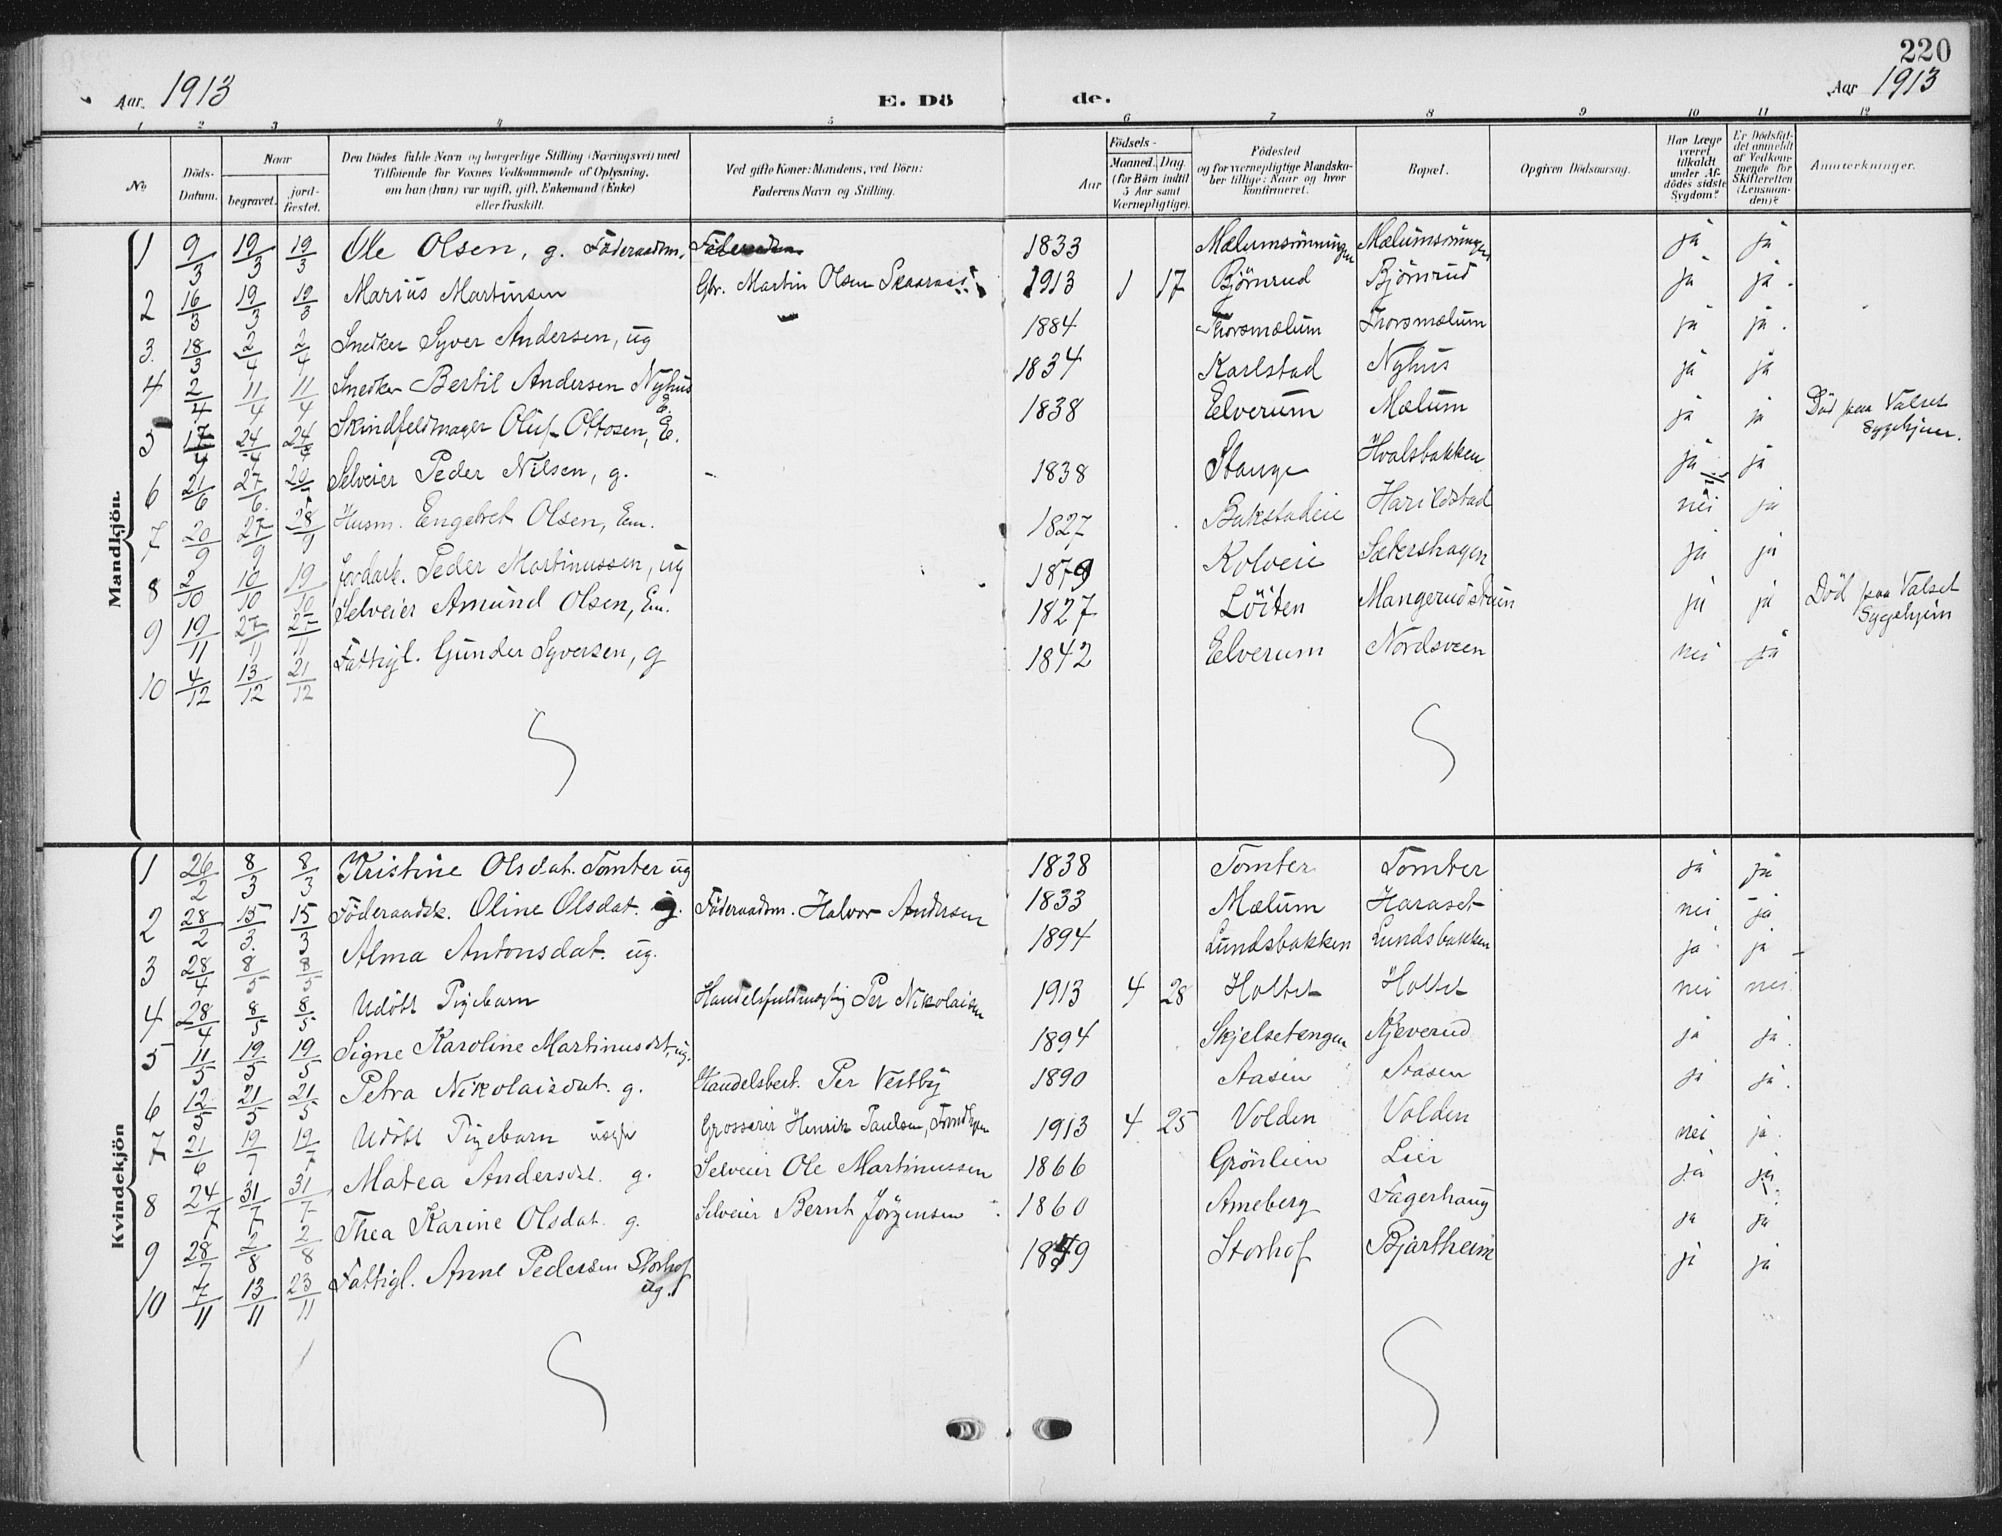 220
Aar. 1913 E. Dö de. Aar 1913
1 2 3 4 5 6 7 8 9 10 11 12
No Döds-Datum. Naar begravet. jord-fæstet. Den Dödes fulde Navn og borgerlige Stilling (Næringsvei) med Tilföiende for Voxnes Vedkommende af Oplysning, om han (hun) var ugift, gift, Enkemand (Enke) eller fraskilt. Ved gifte Koner: Mandens, ved Börn: Faderens Navn og Stilling. Födsels- Aar Maaned. Dag. (for Börn indtil 5 Aar samt Værnepligtige). Födested og for værnepligtige Mandskaber tillige: Naar og hvor konfirmeret. Bopæl. Opgiven Dödsaarsag. Har Læge været tilkaldt under Afdödes sidste Sygdom? Er Dödsfaldet anmeldt af Vedkommende for Skifteretten (Lensmanden)? Anmærkninger.
Mandkjön.
1 9/3 19/3 19/3 Ole Olsen, g. Föderaadm. 1833 Mælumsrönningen Mælumsröningen ja ja
2 16/3 19/3 19/3 Marius Martinsen Gbr. Martin Olsen 1913 1 17 Björnrud Björnrud ja ja.
3. 18/3 2/4 2/4 Snedker Syver Andersen, ug 1884 Thorsmælum Thorsmælum ja ja.
4 2/4 11/4 11/4 Snedker Bertil Andersen Nyhus E. 1834 Karlstad Nyhus ja ja
5 17/4 24/4 24/4 Skindfeldmager Oluf Ottosen, E. 1838 Elverum Mælum ja ja Död paa Valset Sygehjem.
6 21/6 27/6 Selveier Peder Nilsen, g. 1838 Stange Hvalsbakken ja ja
7 20/9 27/9 28/9 Husm. Engebret Olsen, Em. 1827 Bakstadeie Harildstad nei ja
8 2/10 10/10 19/10 Jordarb. Peder Martinussen, ug 1879 Kolveie Sætershagen ja ja
9 19/11 27/11 27/11 Selveier Amund Olsen, Em. 1827 Löiten Mangerudstuen ja ja Död paa Valset Sygehjem
10 4/12 13/12 21/12 Fattigl. Gunder Syversen, g 1842 Elverum Nordsveen nei ja
Kvindekjön
1 26/2 8/3 8/3 Kristine Olsdat. Tomter ug 1838 Tomter Tomter ja ja
2 28/2 15/3. 15/3 Föderaadsk. Oline Olsdat. g. Föderaadm. Halvor Andersen 1833 Mælum Haraset nei ja
3 28/4 8/5 8/5 Alma Antonsdat. ug. 1894 Lundsbakken Lundsbakken ja ja
4 28/4 8/5 8/5 Udöbt Pigebarn Handelsfuldmægtig Per Nikolaisen 1913 4 28 Holtet Holtet nei nei
5 11/5 19/5 19/5 Signe Karoline Martinusdt. ug. 1894 Skjelsetengen Kjeverud ja ja.
6 12/5 21/5 21/5 Petra Nikolaisdat. g. Handelsbest. Per Vestby 1890 Aasen Aasen ja ja.
7 21/6 19/7 19/7 Udöbt Pigebarn uægte Grosserer Henrik Paulsen, Trondhjem 1913 4 25 Volden Volden nei ja.
8 24/7 31/7 31/7 Matea Andersdt. g. Selveier Ole Martinussen 1866 Grönlien Lier ja ja
9 28/7 2/8 2/8 Thea Karine Olsdat. g. Selveier Bernt Jörgensen 1860 Arneberg Fagerhaug ja ja
10 7/11 13/11 23/11 Fattigl. Anne Pedersen Storhof ug. Storhof Bjartheim ja ja